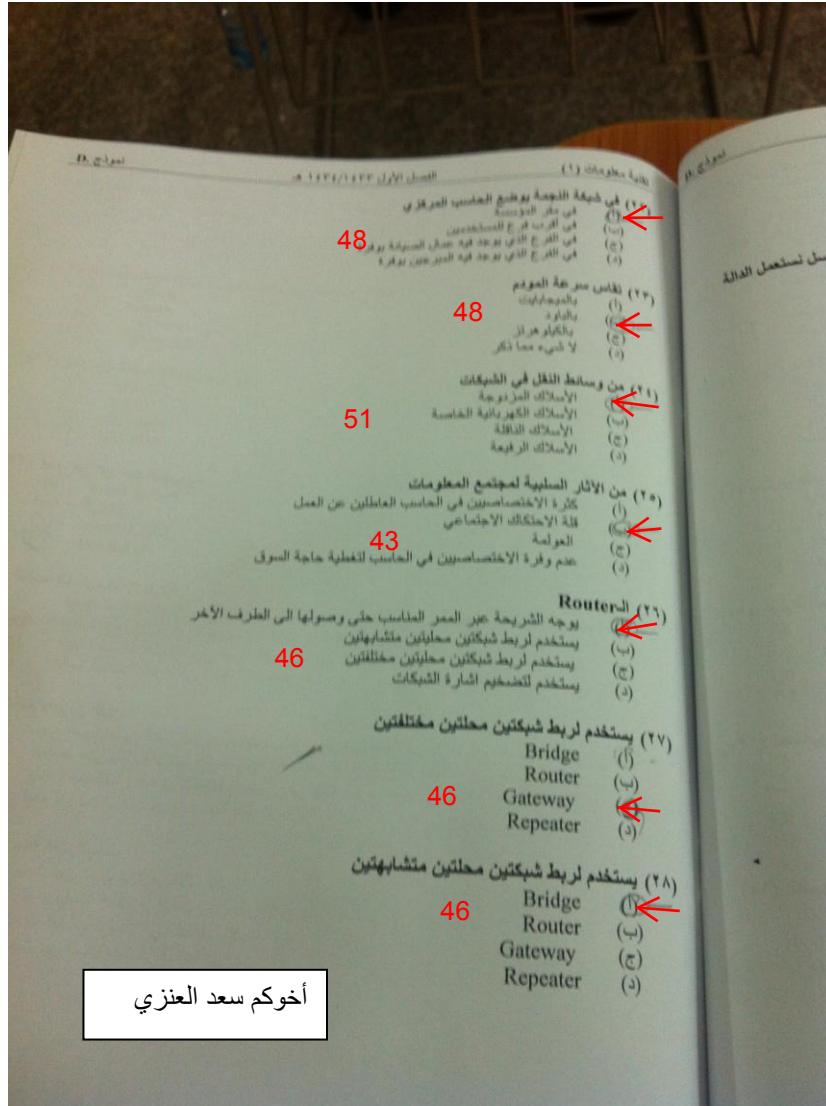 تقنية معلومات (١) الفصل الأول ١٤٣٤/١٤٣٣ هـ نموذج D.
(٢٢) في شبكة النجمة يوضع الحاسب المركزي
(أ) في مقر المؤسسة
(ب) في أقرب فرع للمستخدمين
(ج) في الفرع الذي يوجد فيه عمال الصيانة بوفرة
48
(د) في الفرع الذي يوجد فيه المبرمجين بوفرة
(٢٣) تقاس سرعة المودم
(أ) بالميجابايت
48
(ب) بالباود
(ج) بالكيلوهرتز
(د) لا شيء مما ذكر
(٢٤) من وسائط النقل في الشبكات
(أ) الأسلاك المزدوجة
(ب) الأسلاك الكهربائية الخاصة
51
(ج) الأسلاك الناقلة
(د) الأسلاك الرفيعة
(٢٥) من الآثار السلبية لمجتمع المعلومات
(أ) كثرة الاختصاصيين في الحاسب العاطلين عن العمل
(ب) قلة الاحتكاك الاجتماعي
(ج) العولمة
43
(د) عدم وفرة الاختصاصيين في الحاسب لتغطية حاجة السوق
(٢٦) الـRouter
(أ) يوجه الشريحة عبر الممر المناسب حتى وصولها الى الطرف الأخر
(ب) يستخدم لربط شبكتين محليتين متشابهتين
(ج) يستخدم لربط شبكتين محليتين مختلفتين
46
(د) يستخدم لتضخيم اشارة الشبكات
(٢٧) يستخدم لربط شبكتين محلتين مختلفتين
(أ) Bridge
(ب) Router
(ج) Gateway
46
(د) Repeater
(٢٨) يستخدم لربط شبكتين محلتين متشابهتين
(أ) Bridge
46
(ب) Router
(ج) Gateway
(د) Repeater
أخوكم سعد العنزي
نموذج D.
سل نستعمل الدالة